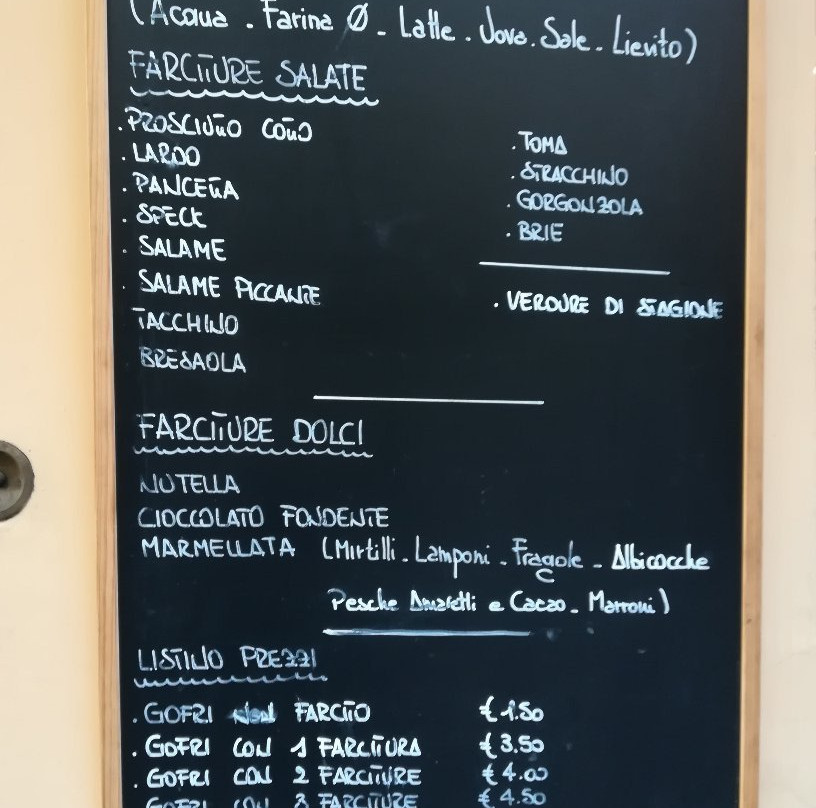 (Acqua . Farina Ø - Latte . Uova . Sale - Lievito)
FARCITURE SALATE
. PROSCIUTTO COTTO
. LARDO
. PANCETTA
. SPECK
. SALAME
. SALAME PICCANTE
TACCHINO
BRESAOLA
. TOMA
. STRACCHINO
. GORGONZOLA
. BRIE
. VERDURE DI STAGIONE
FARCITURE DOLCI
NUTELLA
CIOCCOLATO FONDENTE
MARMELLATA (Mirtilli - Lamponi - Fragole - Albicocche
Pesche Amaretti e Cacao - Marroni)
LISTINO PREZZI
. GOFRI FARCITO € 1.50
. GOFRI CON 1 FARCITURA € 3.50
. GOFRI CON 2 FARCITURE € 4.00
GOFRI CON 3 FARCITURE € 4.50